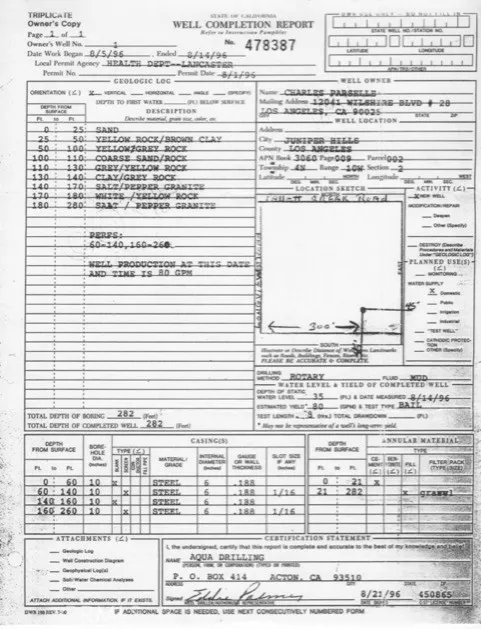 TRIPLICATE
Owner's Copy
Page 1 of 1
Owner's Well No. 1
Date Work Began 8/5/96 , Ended 8/14/96
Local Permit Agency HEALTH DEPT--LANCASTER
Permit No. Permit Date 8/1/96
STATE OF CALIFORNIA
WELL COMPLETION REPORT
Refer to Instruction Pamphlet
No. 478387
STATE WELL NO./STATION NO.
LATITUDE LONGITUDE
APN/TRS/OTHER
GEOLOGIC LOG
ORIENTATION (∠) X VERTICAL HORIZONTAL ANGLE (SPECIFY)
DEPTH TO FIRST WATER (Ft.) BELOW SURFACE
DEPTH FROM SURFACE
Ft. to Ft.
DESCRIPTION
Describe material, grain size, color, etc.
0 25 SAND
25 50 YELLOW ROCK/BROWN CLAY
50 100 YELLOW/GREY ROCK
100 110 COARSE SAND/ROCK
110 130 GREY/YELLOW ROCK
130 140 CLAY/GREY ROCK
140 170 SALT/PEPPER GRANITE
170 180 WHITE /YELLOW ROCK
180 280 SALT / PEPPER GRANITE
PERFS:
60-140,160-260
WELL PRODUCTION AT THIS DATE
AND TIME IS 80 GPM
TOTAL DEPTH OF BORING 282 (Feet)
TOTAL DEPTH OF COMPLETED WELL 282 (Feet)
WELL OWNER
Name CHARLES PARSELLS
Mailing Address 12041 WILSHIRE BLVD # 28
LOS ANGELES, CA 90025
STATE ZIP
WELL LOCATION
Address
City JUNIPER HILLS
County LOS ANGELES
APN Book 3060 Page 009 Parcel 002
Township 4N Range 10W Section 2
Latitude NORTH Longitude WEST
DEG. MIN. SEC. DEG. MIN. SEC.
LOCATION SKETCH
300'
EAST
SOUTH
Illustrate or Describe Distance of Well from Landmarks
such as Roads, Buildings, Fences, Rivers, etc.
PLEASE BE ACCURATE & COMPLETE.
ACTIVITY (∠)
X NEW WELL
MODIFICATION/REPAIR
Deepen
Other (Specify)
DESTROY (Describe
Procedures and Materials
Under "GEOLOGIC LOG")
PLANNED USE(S)
(∠)
MONITORING
WATER SUPPLY
X Domestic
Public
Irrigation
Industrial
"TEST WELL"
CATHODIC PROTECTION
OTHER (Specify)
DRILLING METHOD ROTARY FLUID MUD
WATER LEVEL & YIELD OF COMPLETED WELL
DEPTH OF STATIC
WATER LEVEL 35 (Ft.) & DATE MEASURED 8/14/96
ESTIMATED YIELD* 80 (GPM) & TEST TYPE BAIL
TEST LENGTH (Hrs.) TOTAL DRAWDOWN (Ft.)
* May not be representative of a well's long-term yield.
DEPTH FROM SURFACE
Ft. to Ft.
BORE-HOLE DIA. (Inches)
CASING(S)
TYPE (∠)
BLANK SCREEN
MATERIAL/ GRADE
INTERNAL DIAMETER (Inches)
GAUGE OR WALL THICKNESS
SLOT SIZE IF ANY (Inches)
0 60 10 X STEEL 6 .188
60 140 10 X STEEL 6 .188 1/16
140 160 10 X STEEL 6 .188
160 260 10 X STEEL 6 .188 1/16
DEPTH FROM SURFACE
Ft. to Ft.
ANNULAR MATERIAL
TYPE
CEMENT (∠) BENTONITE (∠) FILL (∠) FILTER PACK (TYPE/SIZE)
0 21 X
21 282 X gravel
ATTACHMENTS (∠)
Geologic Log
Well Construction Diagram
Geophysical Log(s)
Soil/Water Chemical Analyses
Other
ATTACH ADDITIONAL INFORMATION, IF IT EXISTS.
CERTIFICATION STATEMENT
I, the undersigned, certify that this report is complete and accurate to the best of my knowledge and belief.
NAME AQUA DRILLING
(PERSON, FIRM, OR CORPORATION) (TYPED OR PRINTED)
P. O. BOX 414 ACTON, CA 93510
ADDRESS STATE ZIP
Signed 8/21/96 450865
WELL DRILLER/AUTHORIZED REPRESENTATIVE DATE SIGNED C-57 LICENSE NUMBER
DWR 188 REV. 7-90
IF ADDITIONAL SPACE IS NEEDED, USE NEXT CONSECUTIVELY NUMBERED FORM